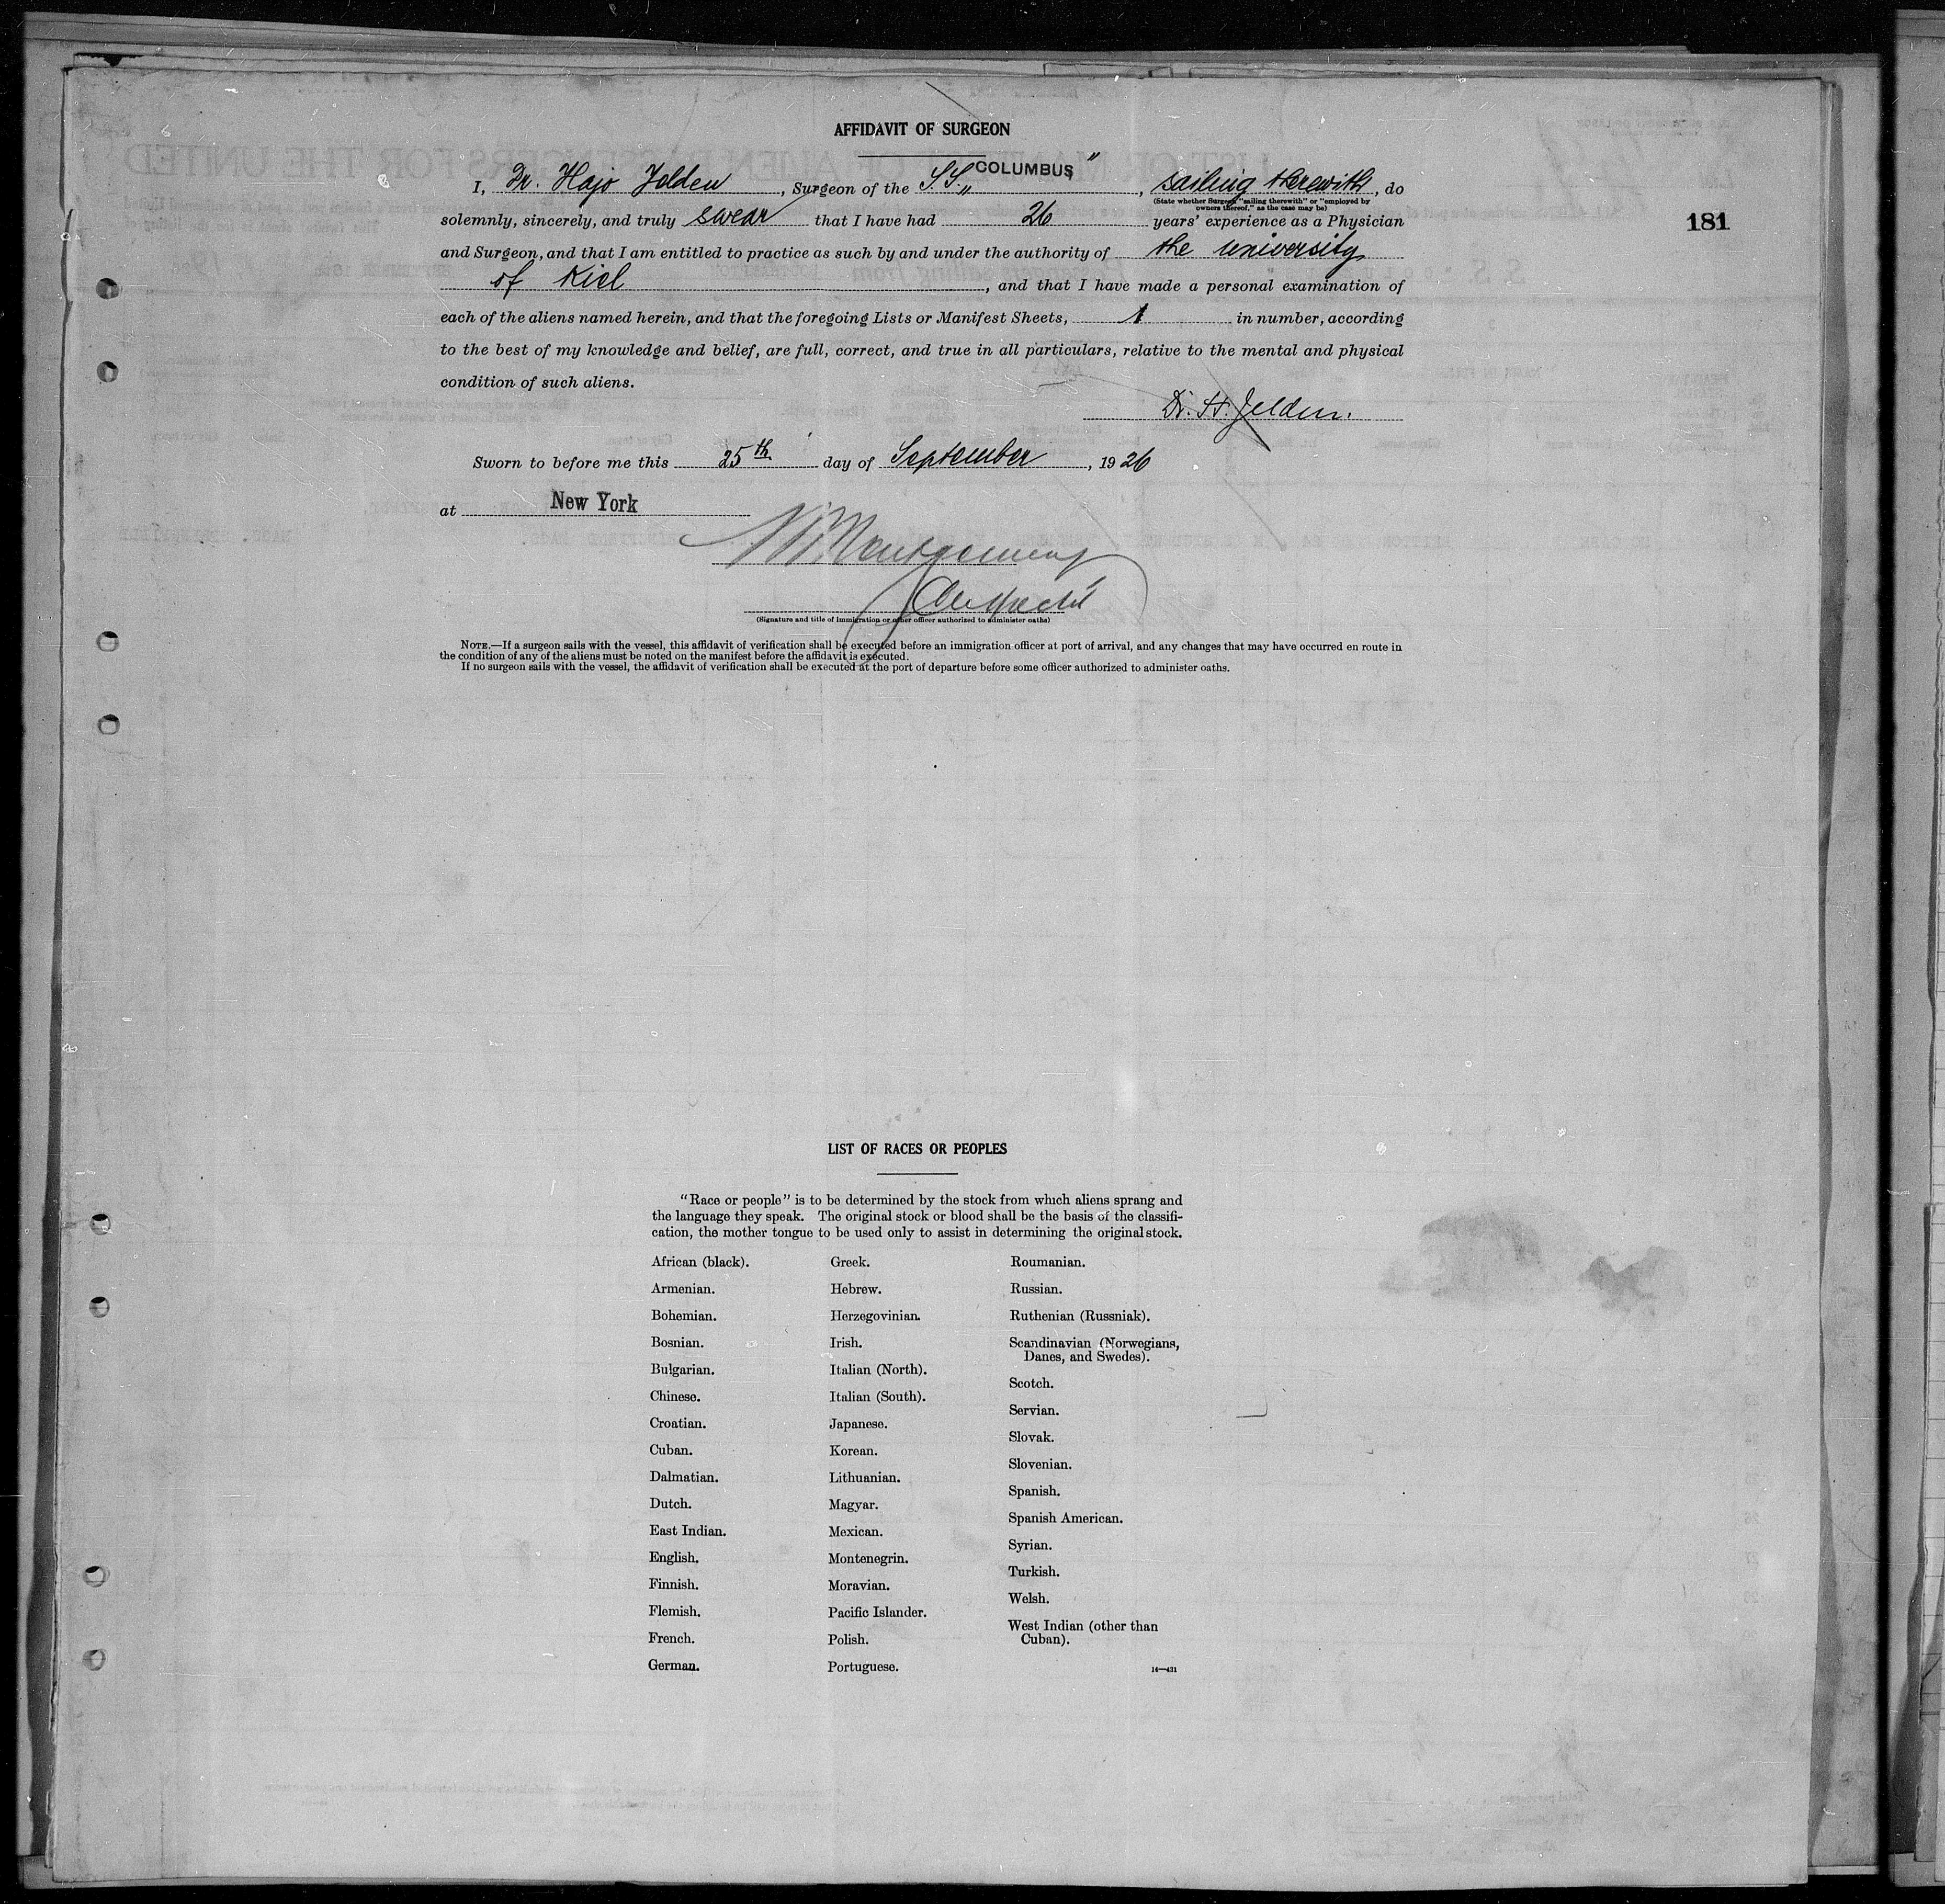 AFFIDAVIT OF SURGEON
I, Dr. Hajo Jelden, Surgeon of the S.S. „COLUMBUS", sailing therewith, do
(State whether Surgeon "sailing therewith" or "employed by
owners thereof," as the case may be)
solemnly, sincerely, and truly swear that I have had 26 years' experience as a Physician
181
and Surgeon, and that I am entitled to practice as such by and under the authority of the university
of Kiel, and that I have made a personal examination of
each of the aliens named herein, and that the foregoing Lists or Manifest Sheets, 1 in number, according
to the best of my knowledge and belief, are full, correct, and true in all particulars, relative to the mental and physical
condition of such aliens.
Dr. H. Jelden.
Sworn to before me this 25th day of September, 1926
at New York
Montgomery
(Signature and title of immigration or other officer authorized to administer oaths)
NOTE.—If a surgeon sails with the vessel, this affidavit of verification shall be executed before an immigration officer at port of arrival, and any changes that may have occurred en route in
the condition of any of the aliens must be noted on the manifest before the affidavit is executed.
If no surgeon sails with the vessel, the affidavit of verification shall be executed at the port of departure before some officer authorized to administer oaths.
LIST OF RACES OR PEOPLES
"Race or people" is to be determined by the stock from which aliens sprang and
the language they speak. The original stock or blood shall be the basis of the classifi-
cation, the mother tongue to be used only to assist in determining the original stock.
African (black).
Armenian.
Bohemian.
Bosnian.
Bulgarian.
Chinese.
Croatian.
Cuban.
Dalmatian.
Dutch.
East Indian.
English.
Finnish.
Flemish.
French.
German.
Greek.
Hebrew.
Herzegovinian.
Irish.
Italian (North).
Italian (South).
Japanese.
Korean.
Lithuanian.
Magyar.
Mexican.
Montenegrin.
Moravian.
Pacific Islander.
Polish.
Portuguese.
Roumanian.
Russian.
Ruthenian (Russniak).
Scandinavian (Norwegians,
Danes, and Swedes).
Scotch.
Servian.
Slovak.
Slovenian.
Spanish.
Spanish American.
Syrian.
Turkish.
Welsh.
West Indian (other than
Cuban).
14—431